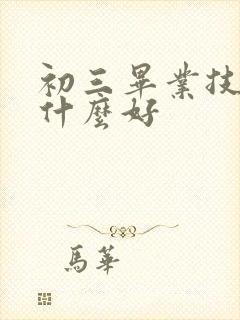 初三畢業技
什麼好
馬華